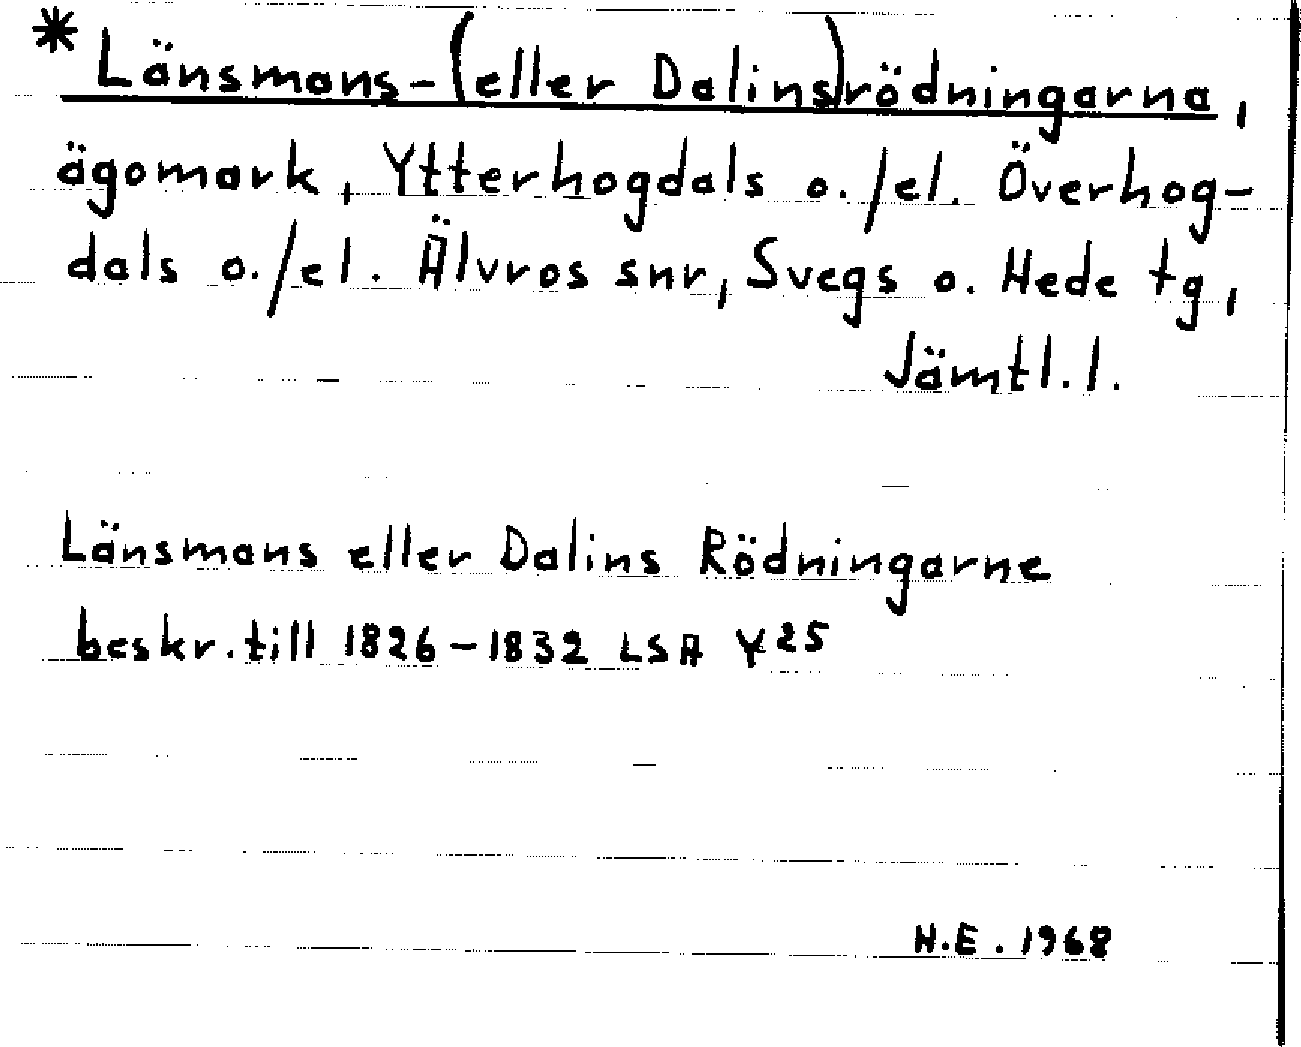 * Länsmans-(eller Dalins)rödningarna,
ägomark, Ytterhogdals o./el. Överhog-
dals o./el. Älvros snr, Svegs o. Hede tg,
Jämtl.l.
Länsmans eller Dalins Rödningarne
beskr. till 1826-1832 LSA Y25
H.E. 1968